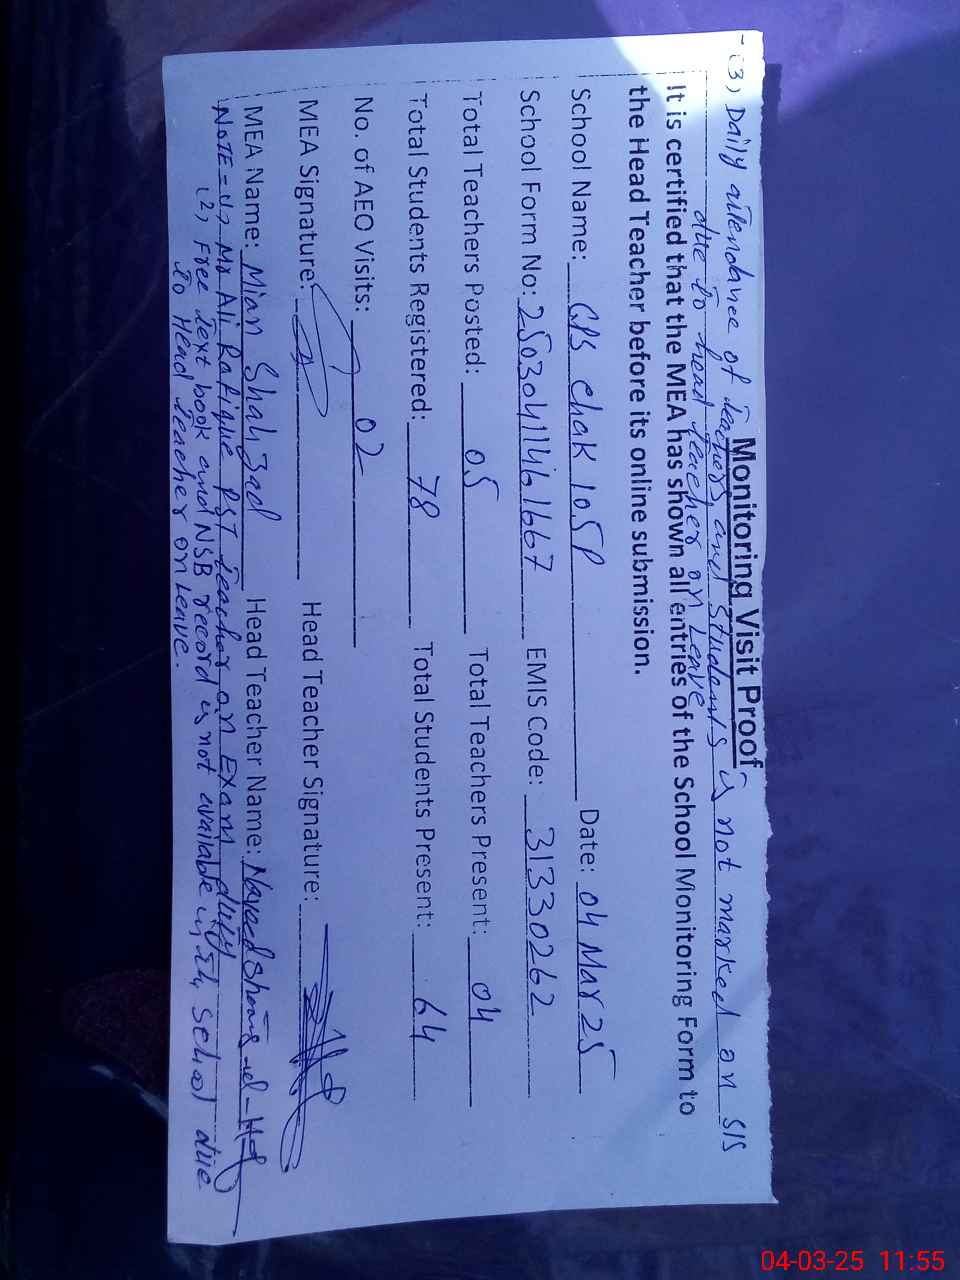 (3) Daily attendance of teachers and students is not marked on SIS
due to head teacher on Leave
Monitoring Visit Proof
It is certified that the MEA has shown all entries of the School Monitoring Form to
the Head Teacher before its online submission.
School Name: GPS Chak 105P Date: 04 Mar 25
School Form No: EMIS Code: 31330262
Total Teachers Posted: 05 Total Teachers Present: 04
Total Students Registered: 78 Total Students Present: 64
No. of AEO Visits: 02
MEA Signature: Head Teacher Signature:
MEA Name: Mian Shahzad Head Teacher Name:
NOTE = (1) Mr Ali Rafique PST teacher on Exam duty
(2) Free text book and NSB record is not available in the School due
to Head teacher on Leave.
04-03-25 11:55